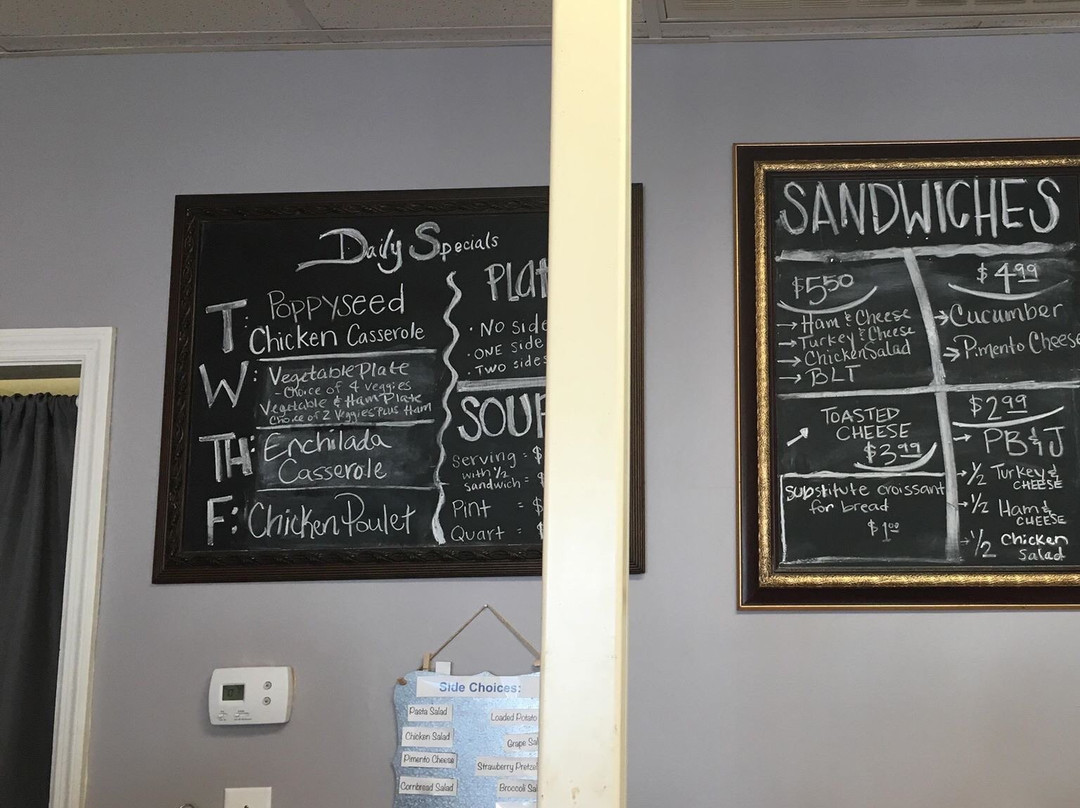 Daily Specials
T: Poppyseed
Chicken Casserole
W: Vegetable Plate
- Choice of 4 veggies
Vegetable & Ham Plate
Choice of 2 Veggies Plus Ham
TH: Enchilada
Casserole
F: Chicken Poulet
PLAT
· NO side
· ONE side
· TWO sides
SOUP
Serving = $
with 1/2
sandwich = $
Pint = $
Quart = $
SANDWICHES
$5.50
→ Ham & Cheese
→ Turkey & Cheese
→ Chicken Salad
→ BLT
$4.99
→ Cucumber
→ Pimento Cheese
TOASTED
CHEESE
$3.99
substitute croissant
for bread
$1.00
$2.99
→ PB & J
→ 1/2 Turkey &
CHEESE
→ 1/2 Ham &
CHEESE
→ 1/2 Chicken
Salad
Side Choices:
Pasta Salad
Chicken Salad
Pimento Cheese
Cornbread Salad
Loaded Potato
Grape Sal
Strawberry Pretzel
Broccoli Sal